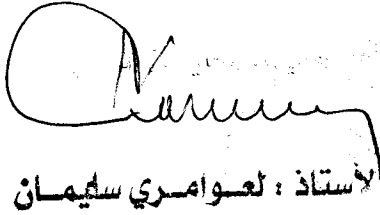 الأستاذ : لعوامري سليمان